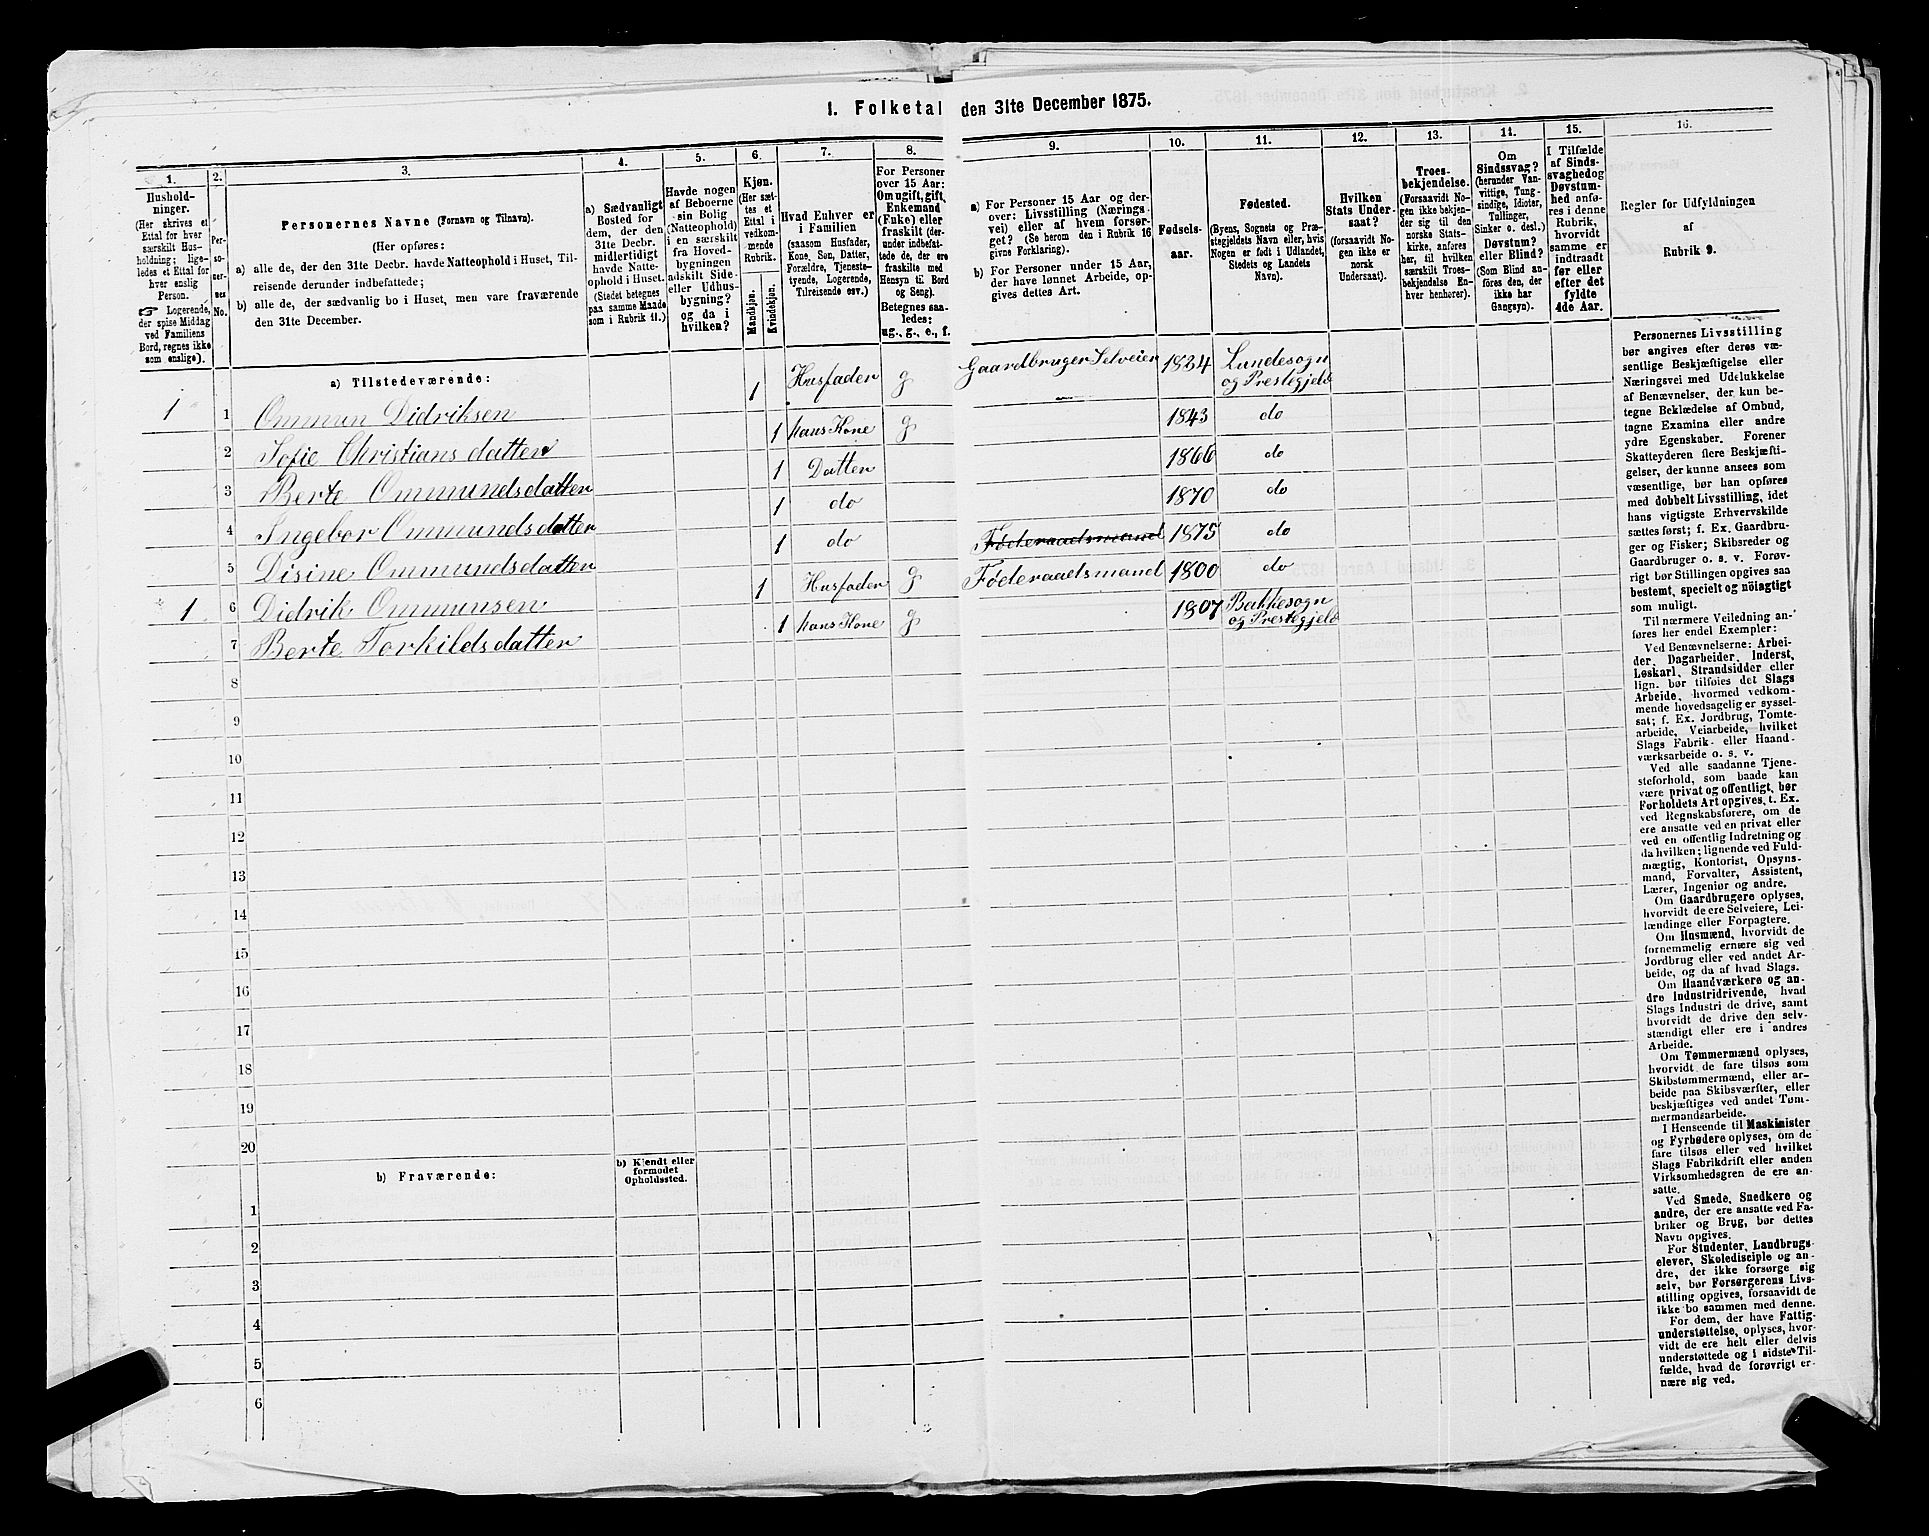 1. Folketal den 31te December 1875.
1.
2.
3.
4.
5.
6.
7.
8.
9.
10.
11.
12.
13.
14.
15.
16.
Hushold-
ninger.
(Her skrives et
Ettal for hver
særskilt Hus-
holdning; lige-
ledes et Ettal for
hver enslig
Person.
☞ Logerende,
der spise Middag
ved Familiens
Bord, regnes ikke
som enslige).
Per-
so-
ner-
nes
No.
Personernes Navne (Fornavn og Tilnavn).
(Her opføres:
a) alle de, der den 31te Decbr. havde Natteophold i Huset, Til-
reisende derunder indbefattede;
b) alle de, der sædvanlig bo i Huset, men vare fraværende
den 31te December.
a) Sædvanligt
Bosted for
dem, der den
31te Decbr.
midlertidigt
havde Natte-
ophold i Huset
(Stedet betegnes
paa samme Maade
som i Rubrik 11.)
Havde nogen
af Beboerne
sin Bolig
(Natteophold)
i en særskilt
fra Hoved-
bygningen
adskilt Side-
eller Udhus-
bygning?
og da i
hvilken?
Kjøn.
(Her sæt-
tes et
Ettal i
vedkom-
mende
Rubrik.
Mandkjøn.
Kvindekjøn.
Hvad Enhver er
i Familien
(saasom Husfader,
Kone, Søn, Datter,
Forældre, Tjeneste-
tyende, Logerende,
Tilreisende osv.)
For Personer
over 15 Aar:
Om ugift, gift,
Enkemand
(Enke) eller
fraskilt (der-
under indbefat-
tede de, der ere
fraskilte med
Hensyn til Bord
og Seng).
Betegnes saa-
ledes:
ug., g., e., f.
a) For Personer 15 Aar og der-
over: Livsstilling (Nærings-
vei) eller af hvem forsør-
get? (Se herom den i Rubrik 16
givne Forklaring).
b) For Personer under 15 Aar,
der have lønnet Arbeide, op-
gives dettes Art.
Fødsels-
aar.
Fødested.
(Byens, Sognets og Præ-
stegjeldets Navn eller, hvis
Nogen er født i Udlandet,
Stedets og Landets
Navn).
Hvilken
Stats Under-
saat?
(forsaavidt No-
gen ikke er
norsk
Undersaat).
Troes-
bekjendelse.
(Forsaavidt No-
gen ikke bekjen-
der sig til den
norske Stats-
kirke, anføres
her, til hvilken
særskilt Troes-
bekjendelse En-
hver henhører).
Om
Sindssvag?
(herunder Van-
vittige, Tung-
sindige, Idioter,
Tullinger,
Sinker o. desl.)
Døvstum?
eller Blind?
(Som Blind an-
føres den, der
ikke har
Gangsyn).
I Tilfælde
af Sinds-
svaghed og
Døvstum-
hed anfø-
res i denne
Rubrik,
hvorvidt
samme er
indtraadt
før eller
efter det
fyldte
4de Aar.
Regler for Udfyldningen
af
Rubrik 9.
a) Tilstedeværende:
1 1 Ommun Didriksen 1 Husfader g Gaardbruger Selveier 1834 Lundesogn
og Prestegjeld
2 Sofie Christians datter 1 hans Kone g 1843 do
3 Berte Ommundsdatter 1 Datter 1866 do
4 Ingebor Ommundsdatter 1 do 1870 do
5 Disine Ommundsdatter 1 do Føderaadsmand 1875 do
1 6 Didrik Ommunsen 1 Husfader g Føderaadsmand 1800 do
7 Berte Torkildsdatter 1 hans Kone g 1807 Bakkesogn
og Prestegjeld
8
9
10
11
12
13
14
15
16
17
18
19
20
b) Fraværende:
b) Kjendt eller
formodet
Opholdssted.
1
2
3
4
5
6
Personernes Livsstilling
bør angives efter deres væ-
sentlige Beskjæftigelse eller
Næringsvei med Udelukkelse
af Benævnelser, der kun be-
tegne Beklædelse af Ombud,
tagne Examina eller andre
ydre Egenskaber. Forener
Skatteyderen flere Beskjæfti-
gelser, der kunne ansees som
væsentlige, bør han opføres
med dobbelt Livsstilling, idet
hans vigtigste Erhvervskilde
sættes først; f. Ex. Gaardbru-
ger og Fisker; Skibsreder og
Gaardbruger o. s. v. Forøv-
rigt bør Stillingen opgives saa
bestemt, specielt og nöiagtigt
som muligt.
Til nærmere Veiledning an-
føres her endel Exempler:
Ved Benævnelserne: Arbei-
der, Dagarbeider, Inderst,
Løskarl, Strandsidder eller
lign. bør tilføies det Slags
Arbeide, hvormed vedkom-
mende hovedsagelig er syssel-
sat; f. Ex. Jordbrug, Tomte-
arbeide, Veiarbeide, hvilket
Slags Fabrik- eller Haand-
værksarbeide o. s. v.
Ved alle saadanne Tjene-
steforhold, som baade kan
være privat og offentligt, bør
Forholdets Art opgives, t. Ex.
ved Regnskabsførere, om de
ere ansatte ved en privat eller
ved en offentlig Indretning og
da hvilken; lignende ved Fuld-
mægtig, Kontorist, Opsyns-
mand, Forvalter, Assistent,
Lærer, Ingeniør og andre.
Om Gaardbrugere oplyses,
hvorvidt de ere Selveiere, Lei-
lændinge eller Forpagtere.
Om Husmænd, hvorvidt de
fornemmelig ernære sig ved
Jordbrug eller ved andet Ar-
beide, og da af hvad Slags.
Om Haandværkere og an-
dre Industridrivende, hvad
Slags Industri de drive, samt
hvorvidt de drive den selv-
stændigt eller ere i andres
Arbeide.
Om Tømmermænd oplyses,
hvorvidt de fare tilsøs som
Skibstømmermænd, eller ar-
beide paa Skibsværfter, eller
beskjæftiges ved andet Tøm-
mermandsarbeide.
I Henseende til Maskinister
og Fyrbødere oplyses, om de
fare tilsøs eller ved hvilket
Slags Fabrikdrift eller anden
Virksomhedsgren de ere an-
satte.
Ved Smede, Snedkere og
andre, der ere ansatte ved Fa-
briker og Brug, bør dettes
Navn opgives.
For Studenter, Landbrugs-
elever, Skoledisciple og an-
dre, der ikke forsørge sig
selv, bør Forsørgerens Livs-
stilling opgives, forsaavidt de
ikke bo sammen med denne.
For dem, der have Fattig-
understøttelse, oplyses, hvor-
vidt de ere helt eller delvis
understøttede og i sidste Til-
fælde, hvad de forøvrigt er-
nære sig ved.